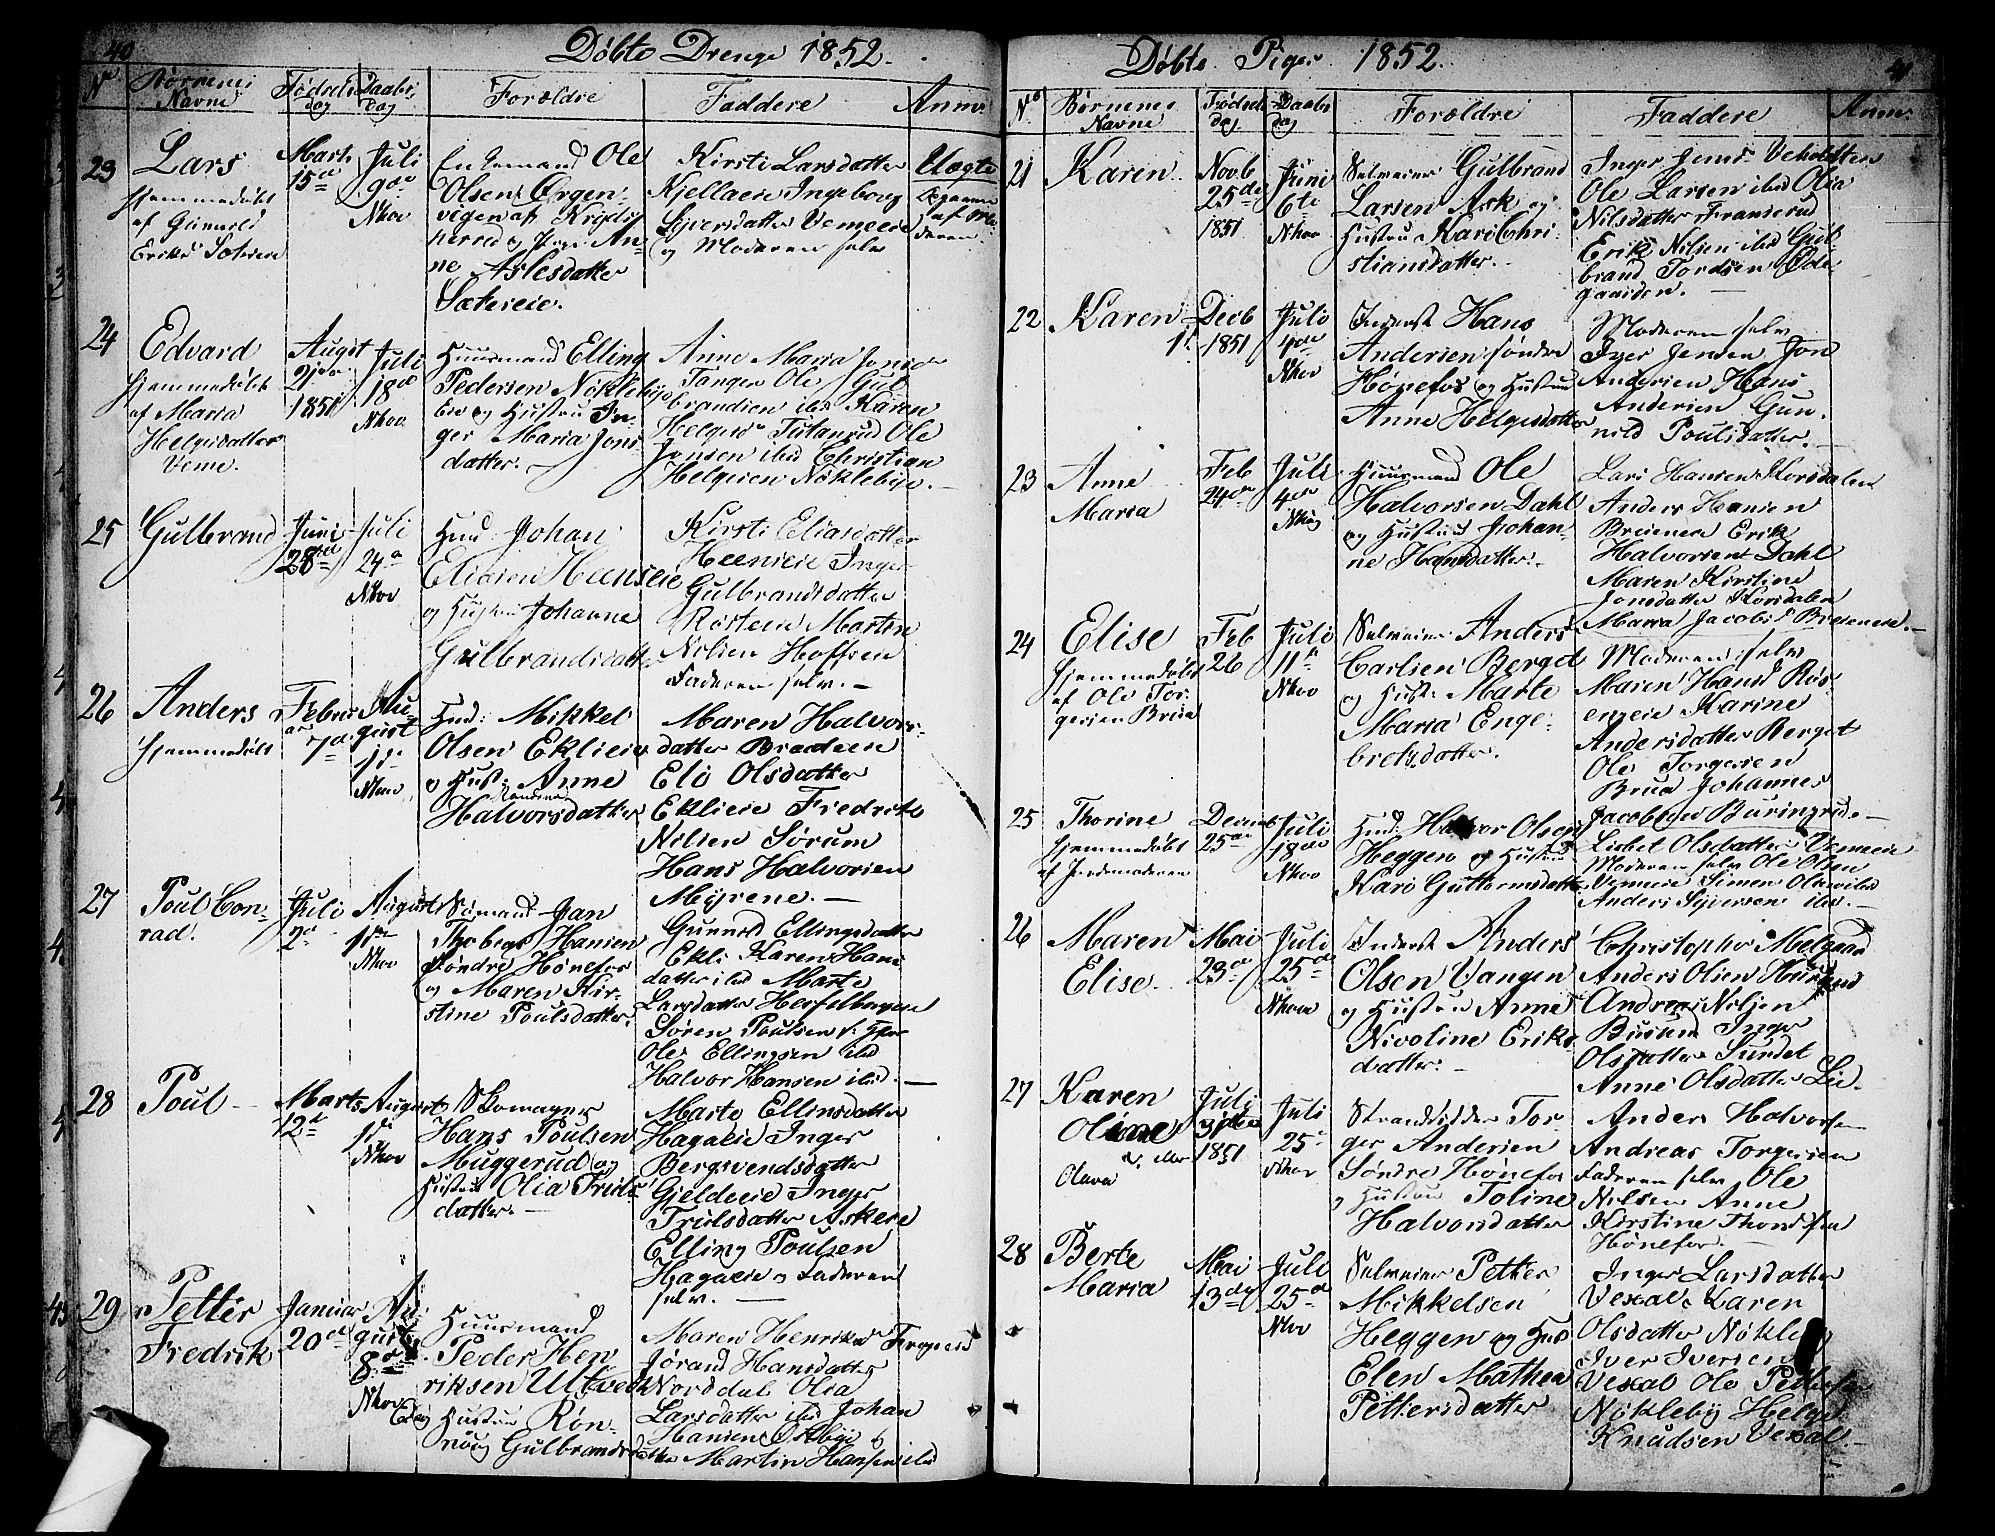 40
Döbte Drenge 1852.
No
Börnenes Navne
Fødsels dag
Daabs Dag
Forældre
Faddere
Anm:
23
Lars
hjemmedøbt
af Gunnild
Eriksd Sætereie
Marts
15de
Juli
9de
Nkov
Enkemand Ole
Olsen Örgen-
vigen af Krydsh
herred og Pige An-
ne Aslesdatter
Sætereie.
Kirsti Larsdatter
Kjellaeie Ingeborg
Syversdatter Vemeeie
og Moderen selv
Uægte
af Mo-
deren.
24
Edvard
hjemmedøbt
af Maria
Helgesdatter
Veme.
August
21de
1851
Juli
18de
Nkov
Huusmand Elling
Pedersen Nöklebye
eie og Hustru In-
ger Maria Jons
datter.
Anne Maria Jonsd
Tangen Ole Gul
brandsen ibd Karen
Helgesd Tutanrud Ole
Jonsen ibd Christian
Helgesen Nöklebye.
25
Gulbrand
Juni
28de
Juli
24de
Nkov
Hmd Johan
Eliasen Heenseie
og Hustru Johanne
Gulbrandsdatter
Kirsti Eliasdatter
Heenseie Inger
Gulbrandsdatter
Rösteeie Martin
Nilsen Hoffseie
Faderen selv.
26
Anders
hjemmedøbt
Februar
7de
August
1ste
Nkov
Hmd: Mikkel
Olsen Eklieie
og Hust: Anne
Halvorsdatter
Maren Halvors-
datter Braateen
Eli Olsdatter
Eklieie Fredrik
Nilsen Sörum
Hans Halvorsen
Myrene.
27
Poul Con-
rad.
Juli
2de
August
1ste
Nkov
Sömand Jan
Thobeas Hansen
Söndre Hönefos
og Maren Kir-
stine Poulsdatter.
Gunnild Ellingsdatter
Ekli Karen Hans
datter ibd Marte
Larsdatter Hesselbergen
Sören Poulsen
Ole Ellingsen ibd
Halvor Hansen ibd.
28
Poul
Marts
12te
August
1ste
Nkov
Skomager
Hans Poulsen
Muggerud og
Hustru Olia Friks
datter.
Marte Ellinsdatter
Hagaeie Inger
Bergsvendsdatter
Gjeldeeie Inger
Trulsdatter Askeie
Elling Poulsen
Hagaeie og Faderen
selv.
29
Petter
Fredrik
Januar
20de
August
8de
Nkov
Huusmand
Peder Hen
riksen Utvedt
og Hustru Rön-
noug Gulbrandsda
Maren Henriksd Frogeeie
Jörand Hansdatter
Norddal Olia
Larsdatter ibd Johan
Hansen Östbye
Martin Hansen ibd
41
Döbte Piger 1852.
No
Börnenes Navne
Fødsels dag
Daabs dag
Forældre
Faddere
Anm:
21
Karen
Novb
25de
1851
Juni
6te
Nkov
Selveier Gulbrand
Larsen Ask og
Hustru Kari Chri-
stiansdatter.
Inger Jensd Veholdteie
Ole Larsen ibd Olia
Nilsdatter Fransrud
Erik Nilsen ibd Gul-
brand Tordsen Öde-
gaarden.
22
Karen
Decb
1. 1851
Juli
4de
Nkov
Inderst Hans
Andersen söndre
Hönefos og Hustru
Anne Helgesdatter
Moderen selv
Iver Jensen Jon
Andersen Hans
Andersen Gun-
nild Poulsdatter.
23
Anne
Maria
Feb
24de
Juli
4de
Nkov
Huusmand Ole
Halvorsen Dahl
og Hustru Johan-
ne Hansdatter.
Lars Hansen Korsdalen
Anders Hansen
Breieneie Erik
Halvorsen Dahl
Maren Kirstine
Jonsdatter Korsdalen
Maria Jacobsd Breieneie.
24
Elise
hjemmedøbt
af Ole Tor-
gersen Brua
Feb
26
Juli
11te
Nkov
Selveier Anders
Carlsen Berget
og Hust: Marte
Maria Enge-
bretsdatter.
Moderen selv
Maren Hansd Rös-
engeie Karine
Andersdatter Berget
Ole Torgersen
Brua Johannes
Jacobsen Buringrud.
25
Thorine
hjemmedøbt
af Jordemoderen
Decemb
25de
Juli
18de
Nkov
Hmd: Halvor Olsen
Heggen og Hustru
Kari Guttormsdatter
Lisbet Olsdatter Vemeeie
Moderen selv Ole Olsen
Vemeeie Simen Olsen ibd
Anders Syversen ibd.
26
Maren
Elise.
Mai
23de
Juli
25de
Nkov
Inderst Anders
Olsen Vangen
og Hustru Anne
Nicoline Eriks-
datter.
Christopher Melgaard
Anders Olsen Hurum
Andreas Nilsen
Busund Inger
Olsdatter Sundet
Anne Olsdatter Lie.
27
Karen
Oline
Olava
Juli
1851
Juli
25de
Nkov
Strandsidder Tor-
ger Andersen
Söndre Hönefos
og Hustru Toline
Halvorsdatter
Anders Halvorsen
Andreas Torgersen
Faderen selv Ole
Nilsen Anne
Kirstine Thorsdsen
Hönefos.
28
Berte
Maria
Mai
13de
Juli
25de
Nkov
Selveier Petter
Mikkelsen
Heggen og Hus
Elen Mathea
Pettersdatter
Inger Larsdatter
Vexal. Karen
Olsdatter Nökleby
Iver Iversen
Vexal Ole Pedersen
Nökleby Helge
Knudsen Vexal.